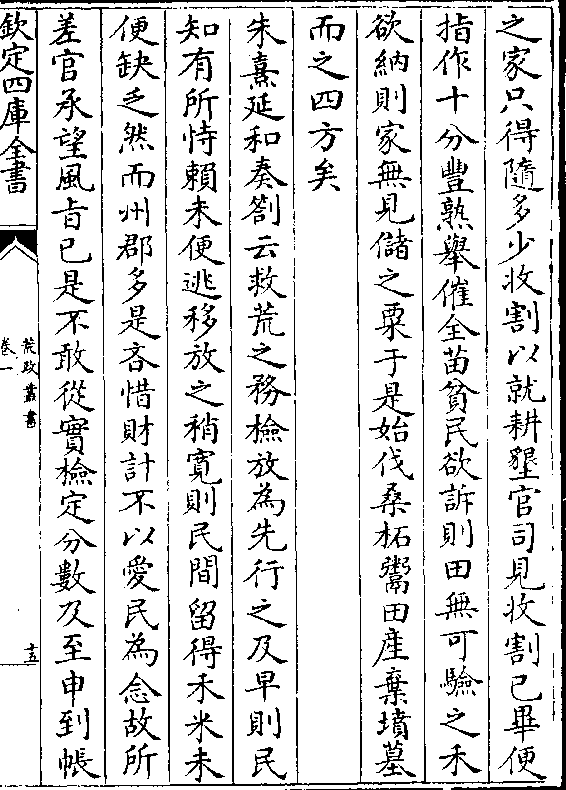 之家只得隨多少收割以就耕墾官司見收割已畢便
指作十分豐熟舉催全苗貧民欲訴則田無可驗之禾
欲納則家無見儲之粟于是始伐桑柘鬻田產棄墳墓
而之四方矣
朱熹延和奏劄云救荒之務檢放為先行之及早則民
知有所恃賴未便逃移放之稍寛則民間留得禾米未
便缺乏然而州郡多是吝惜財計不以愛民為念故所
差官承望風旨已是不敢從實檢定分數及至申到帳
欽定四庫全書
荒政叢書
卷一
十五